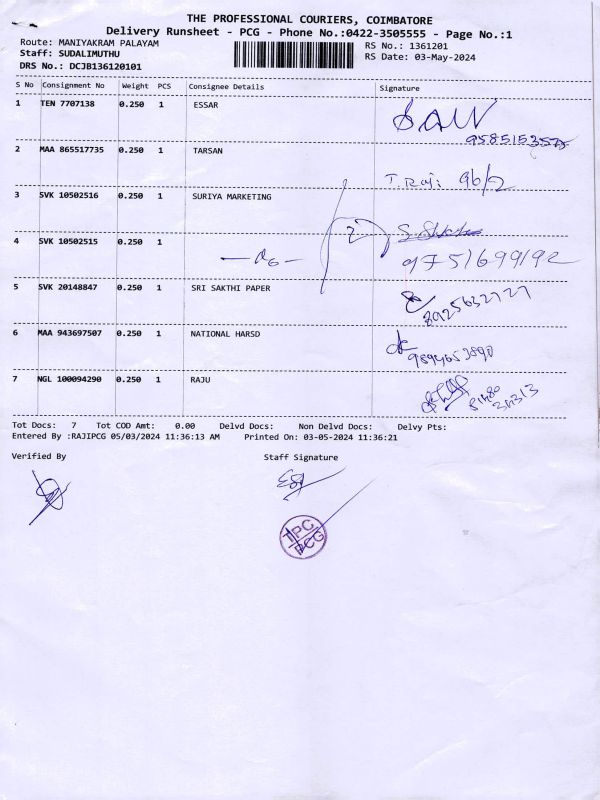 THE PROFESSIONAL COURIERS, COIMBATORE
Delivery Runsheet - PCG - Phone No.:0422-3505555 - Page No.:1
Route: MANIYAKRAM PALAYAM
RS No.: 1361201
Staff: SUDALIMUTHU
RS Date: 03-May-2024
DRS No.: DCJB136120101
S No Consignment No Weight PCS Consignee Details Signature
1 TEN 7707138 0.250 1 ESSAR
9585153575
2 MAA 865517735 0.250 1 TARSAN
T. Raj: 96/2
3 SVK 10502516 0.250 1 SURIYA MARKETING
2
4 SVK 10502515 0.250 1
9751699192
5 SVK 20148847 0.250 1 SRI SAKTHI PAPER
8925632727
6 MAA 943697507 0.250 1 NATIONAL HARSD
7 NGL 100094290 0.250 1 RAJU
Tot Docs: 7 Tot COD Amt: 0.00 Delvd Docs: Non Delvd Docs: Delvy Pts:
Entered By :RAJIPCG 05/03/2024 11:36:13 AM Printed On: 03-05-2024 11:36:21
Verified By Staff Signature
TPC
PCG